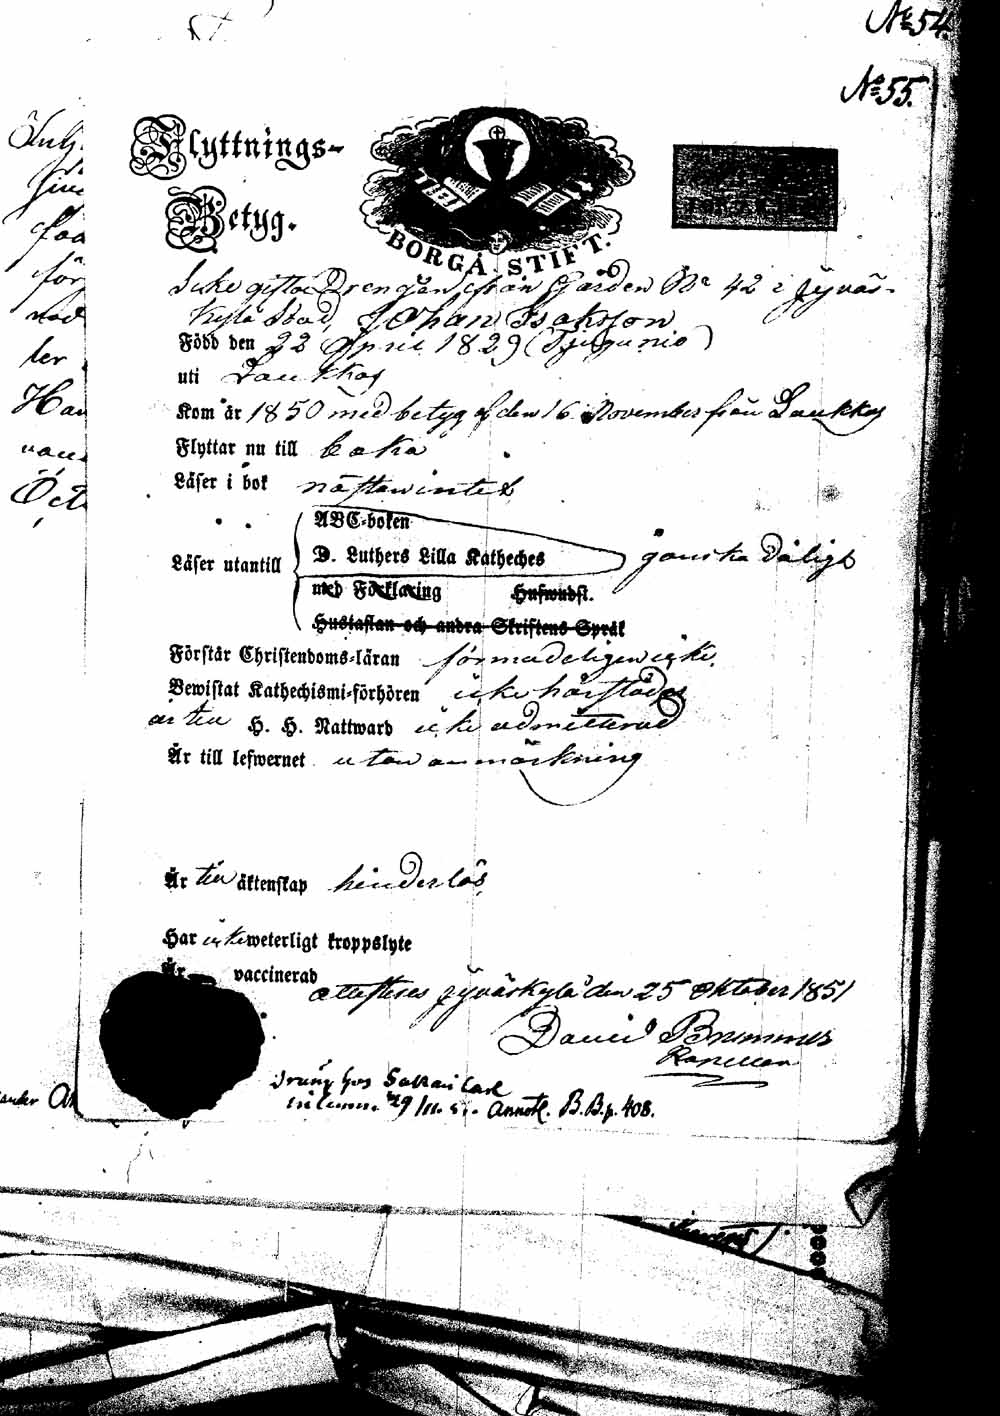 № 54.
№ 55.
Flyttnings-
Betyg.
BORGÅ STIFT.
Icke gifta Drengen från Gården № 42 i Jyväs-
kylä Stad, Johan Isaksson
Född den 22 April 1829 (Tjugunio)
uti Laukkas
Kom år 1850 med betyg af den 16 November från Laukkas
Flyttar nu till baka
Läser i bok nästan intet
ABC-boken
Läser utantill D. Luthers Lilla Katheches ganska dåligt
med Förklaring Hufwudst.
Hustaflan och andra Skriftens Språk
Förstår Christendoms-läran förmodeligen icke.
Bewistat Kathechismi-förhören icke härstädes
är till H. H. Nattward icke admitterad
Är till lefwernet utan anmärkning
Är till äktenskap hinderlös
Har icke weterligt kroppslyte
Är vaccinerad
attesteras Jyväskylä den 25 Oktober 1851
David Brummer
Kapellan
Dräng hos
29/11. 51. Annot. B. B. p. 408.